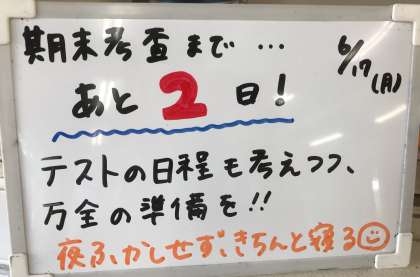 期末考査まで…
6/17(月)
あと2日!
テストの日程も考えつつ、
万全の準備を!!
夜ふかしせず、きちんと寝る